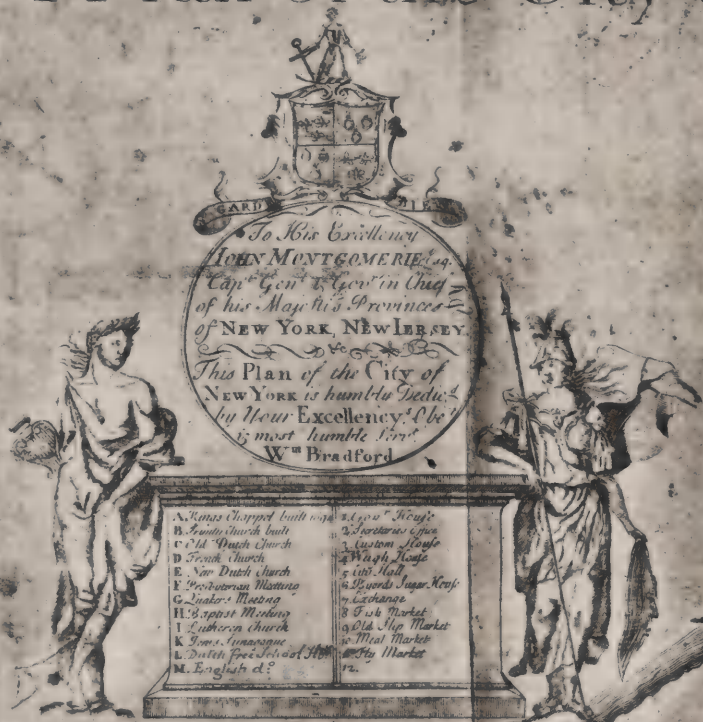 GARDE BIEN
To His Excellency
IOHN MONTGOMERIE Esq.
Capt. Genl. & Govr. in Chief
of his Majesti's Provinces
of NEW YORK, NEW IERSEY
&c
This Plan of the City of
NEW YORK is humbly Dedicd.
by Your Excellency's Obet.
& most humble Servt.
Wm Bradford
A. Kings Chappel built 1694
B. Trinity Church built
C Old Dutch Church
D French Church
E. New Dutch Church
F. Presbyterian Meeting
G. Quakers Meeting
H. Baptist Meeting
I Lutheren Church
K Jews Synagogue
L. Dutch Free School
M. English do.
1. Govrs House
2. Secretaries Office
3. Custom House
4. Weigh House
5 City Hall
6. Byards Sugar House
7. Exchange
8 Fish Market
9. Old Slip Market
10 Meal Market
11 Fly Market
12.